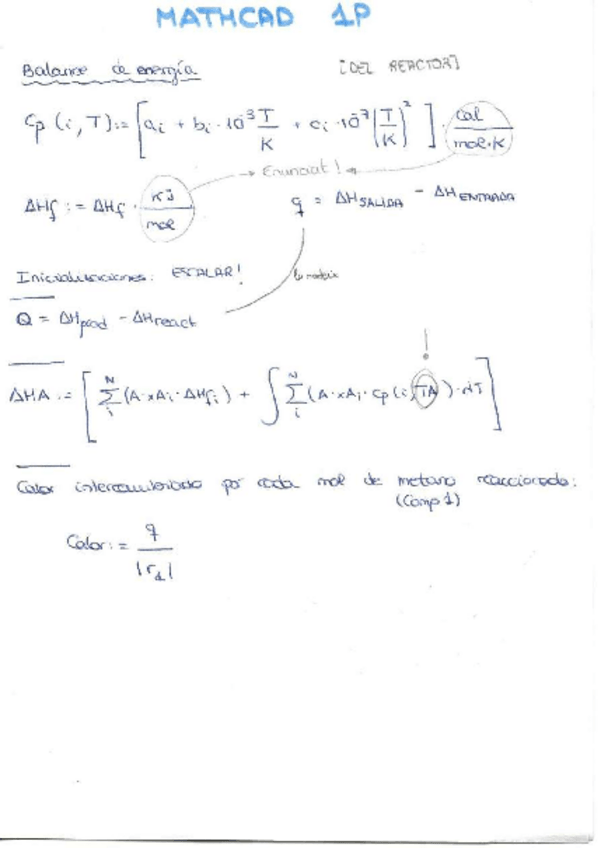 MATHCAD 1P
Balance de energía [DEL REACTOR]
Cp (i, T) := [ai + bi · 10³ T/K + ci · 10⁻⁷ (T/K)²] · cal/mol·K
→ Enunciat! ←
ΔHf := ΔHf · KJ/mol
q = ΔH SALIDA - ΔH ENTRADA
Inicializaciones: ESCALAR!
Q = ΔHprod - ΔHreact
ΔHA := [ N Σ i (A·xAi·ΔHfi) + ∫ N Σ i (A·xAi·Cp(i,TA)·dT ]
!
Calor intercambiado por cada mol de metano reaccionado:
(Comp 1)
Calor := q/|r1|